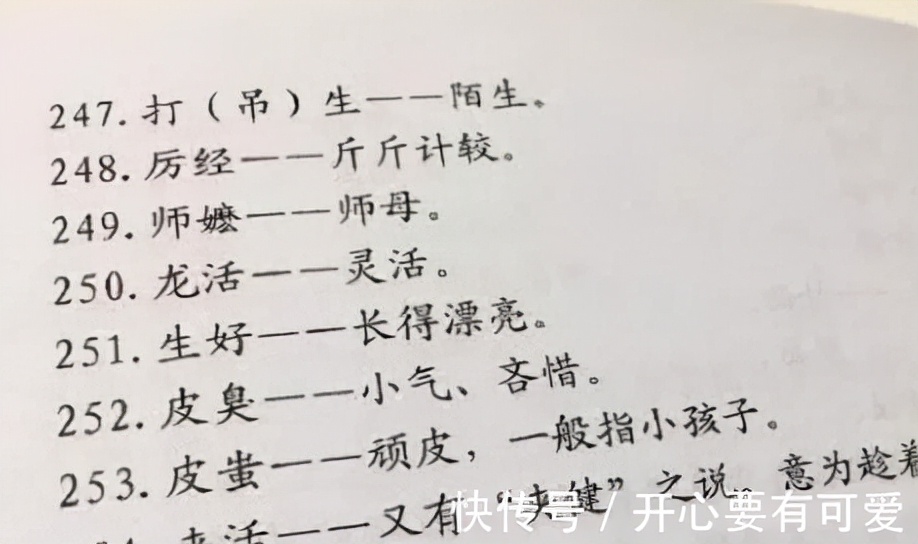 247. 打（吊）生——陌生。
248. 厉经——斤斤计较。
249. 师嬷——师母。
250. 龙活——灵活。
251. 生好——长得漂亮。
252. 皮臭——小气、吝惜。
253. 皮蚩——顽皮，一般指小孩子。
活——又有“夹健”之说。意为趁着
快传号 / 开心要有可爱